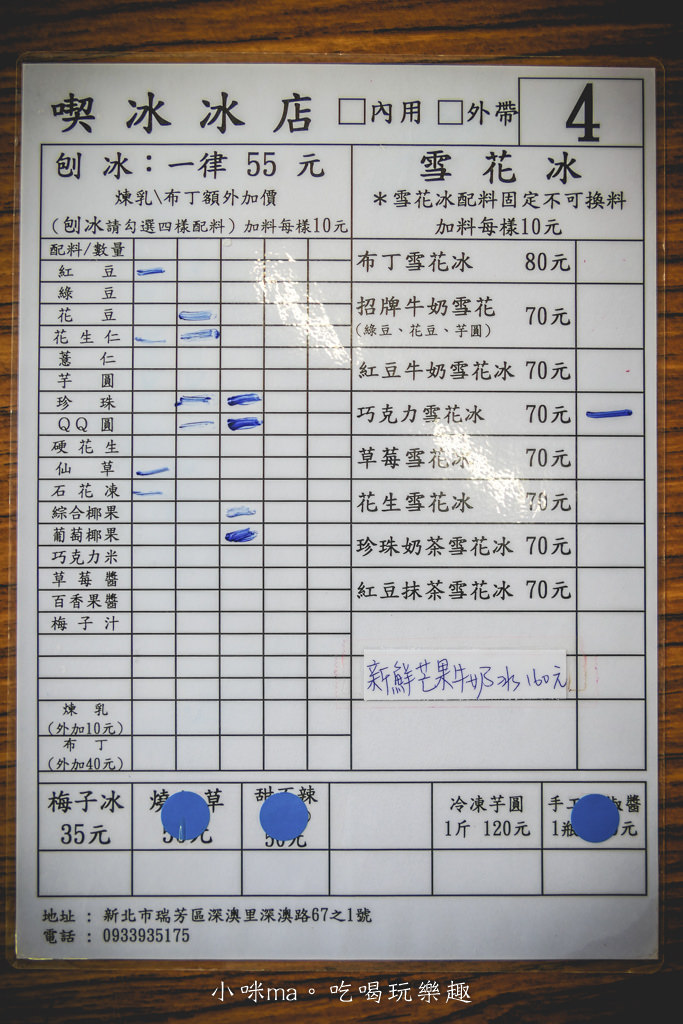 喫冰冰店 □內用 □外帶 4
刨冰：一律 55 元
煉乳\布丁額外加價
(刨冰請勾選四樣配料) 加料每樣10元
配料/數量
紅豆
綠豆
花豆
花生仁
薏仁
芋圓
珍珠
QQ圓
硬花生
仙草
石花凍
綜合椰果
葡萄椰果
巧克力米
草莓醬
百香果醬
梅子汁
煉乳
(外加10元)
布丁
(外加40元)
雪花冰
＊雪花冰配料固定不可換料
加料每樣10元
布丁雪花冰 80元
招牌牛奶雪花 70元
(綠豆、花豆、芋圓)
紅豆牛奶雪花冰 70元
巧克力雪花冰 70元
草莓雪花冰 70元
花生雪花冰 70元
珍珠奶茶雪花冰 70元
紅豆抹茶雪花冰 70元
新鮮芒果牛奶冰160元
梅子冰
35元
燒 草
50元
甜不辣
50元
冷凍芋圓
1斤 120元
手工 椒醬
1瓶 元
地址 : 新北市瑞芳區深澳里深澳路67之1號
電話 : 0933935175
小咪ma。吃喝玩樂趣